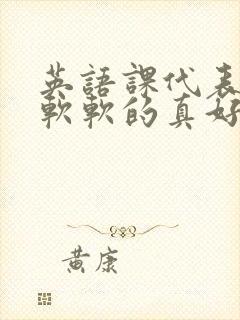 英語課代表
軟軟的真好
黃康